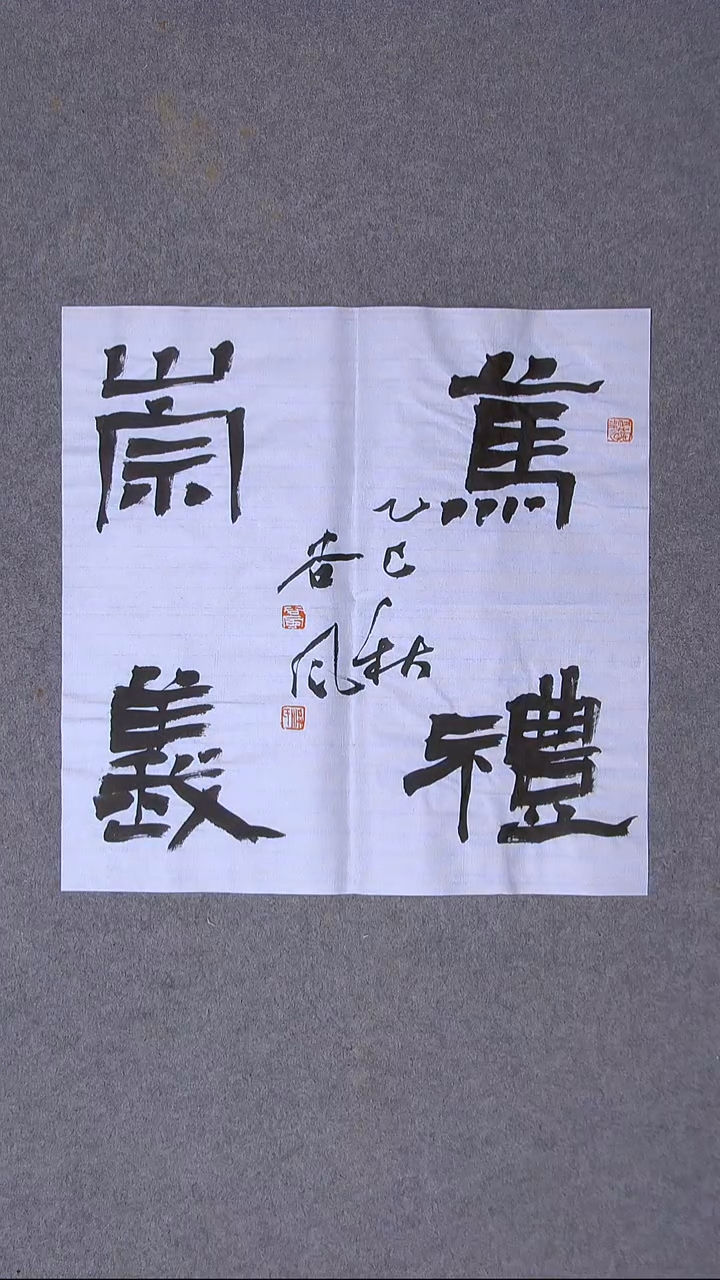 篤禮
崇義
乙巳秋
杏风